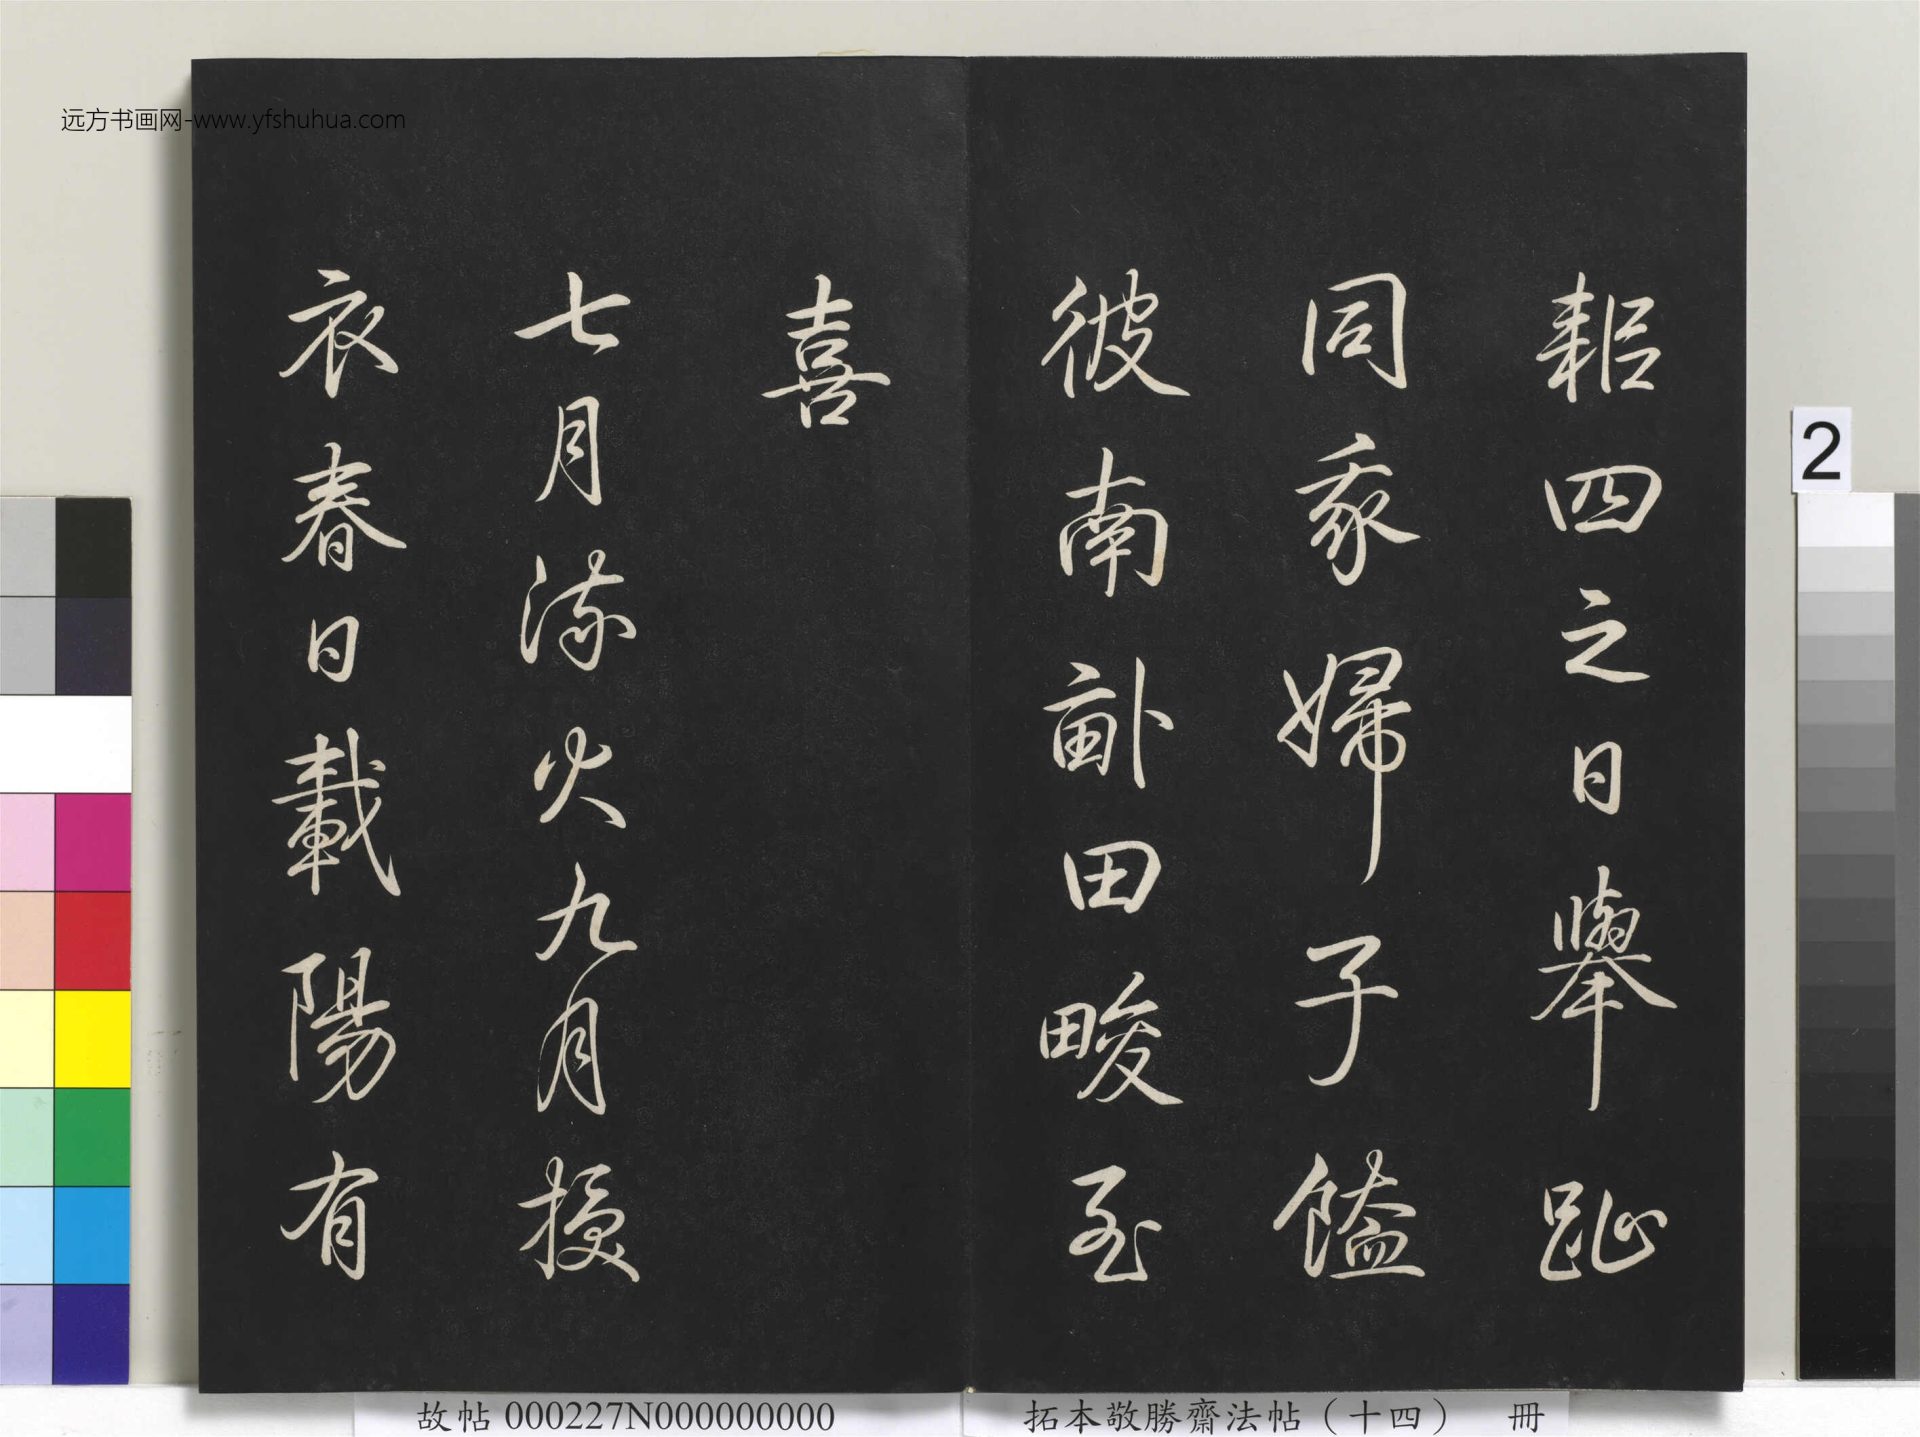 耜四之日舉趾
同我婦子饁
彼南畝田畯至
喜
七月流火九月授
衣春日載陽有
远方书画网-www.yfshuhua.com
2
故帖 000227N000000000
拓本敬勝齋法帖（十四） 冊